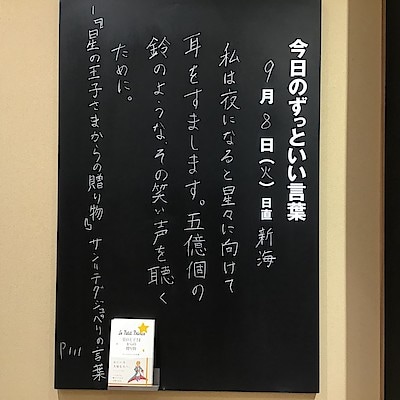 今日のずっといい言葉
9月8日(火) 日直 新海
私は夜になると星々に向けて
耳をすまします。五億個の
鈴のような、その笑い声を聴く
ために。
―『星の王子さまからの贈り物』サン=テグジュペリの言葉
P111
Le Petit Prince
星の王子さま
からの
贈り物